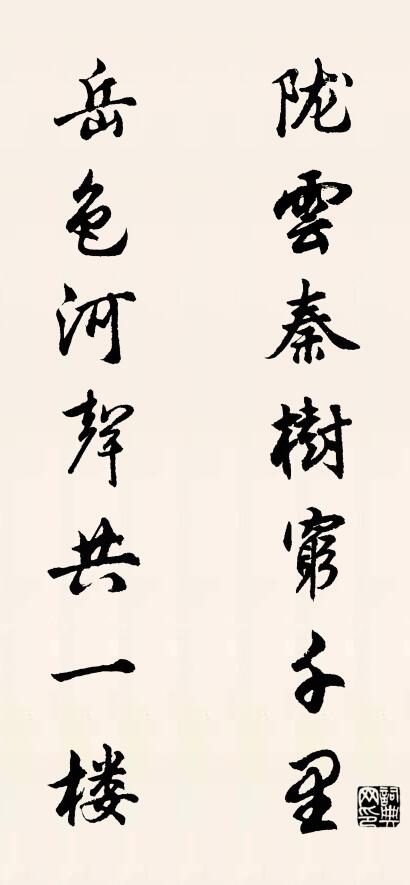 陇雲秦樹窮千里
岳色河聲共一楼
詞典网印